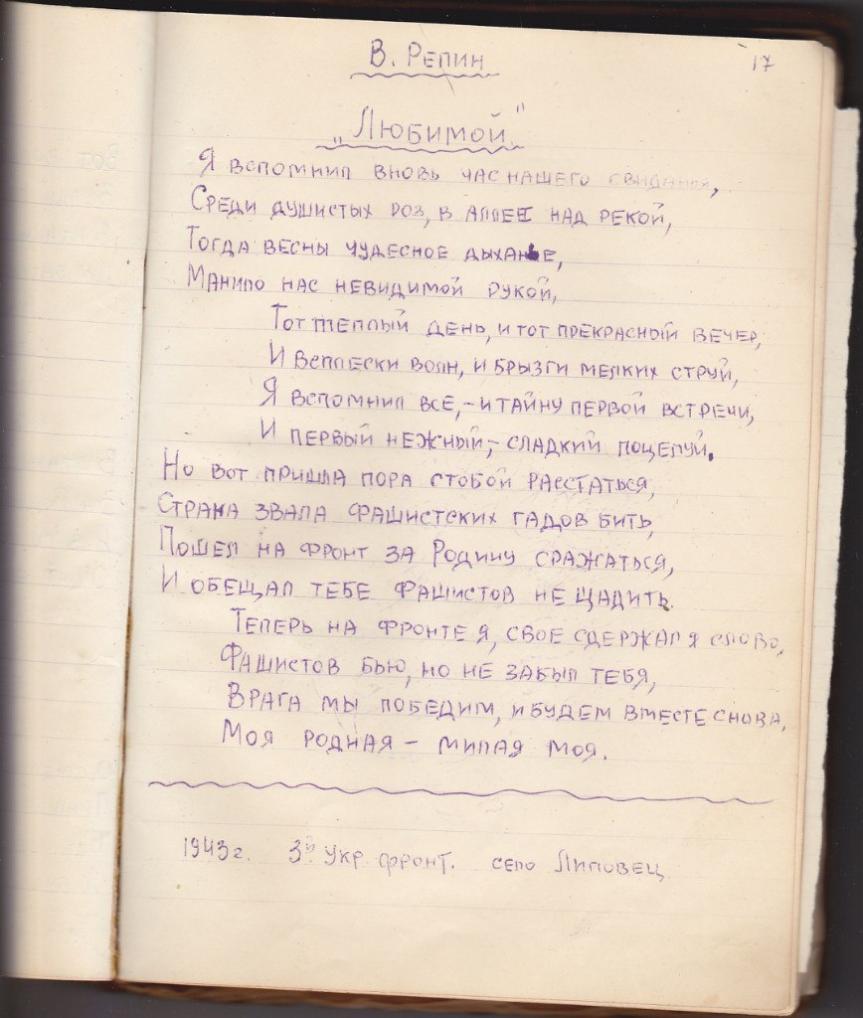 В. Репин
17
„Любимой"
Я вспомнил вновь час нашего свиданья,
Среди душистых роз, в аллее над рекой,
Тогда весны чудесное дыханье,
Манило нас невидимой рукой,
Тот теплый день, и тот прекрасный вечер,
И всплески волн, и брызги мелких струй,
Я вспомнил все, – и тайну первой встречи,
И первый нежный, – сладкий поцелуй.
Но вот пришла пора стобой расстаться,
Страна звала фашистских гадов бить,
Пошел на фронт за Родину сражаться,
И обещал тебе фашистов не щадить.
Теперь на фронте я, свое сдержал я слово,
Фашистов бью, но не забыл тебя,
Врага мы победим, и будем вместе снова,
Моя родная – милая моя.
1943г. 3й Укр. фронт. село Липовец